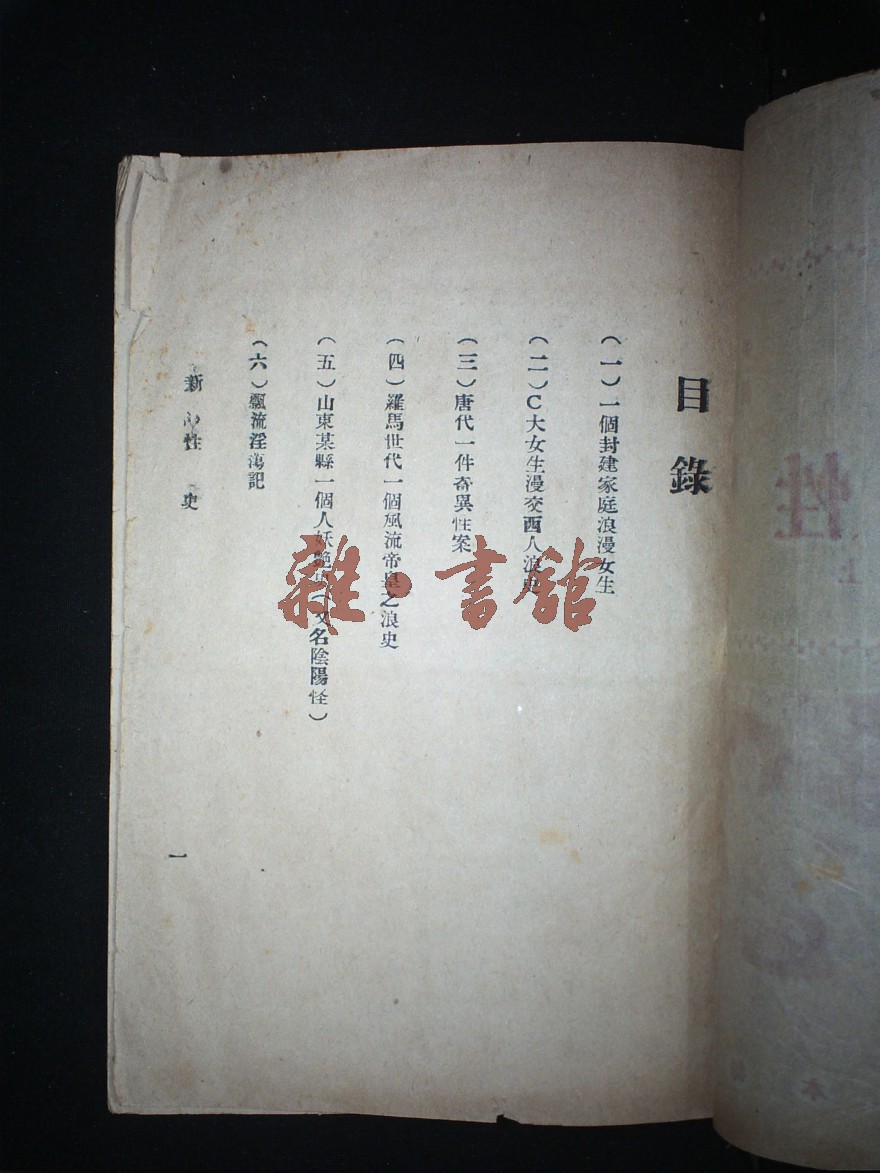 目錄
(一)一個封建家庭浪漫女生
(二)C大女生漫交西人浪史
(三)唐代一件奇異性案
(四)羅馬世代一個風流帝皇之浪史
(五)山東某縣一個人妖艷史(又名陰陽怪)
(六)飄流淫蕩記
新 性 史
一
雜·書館
性